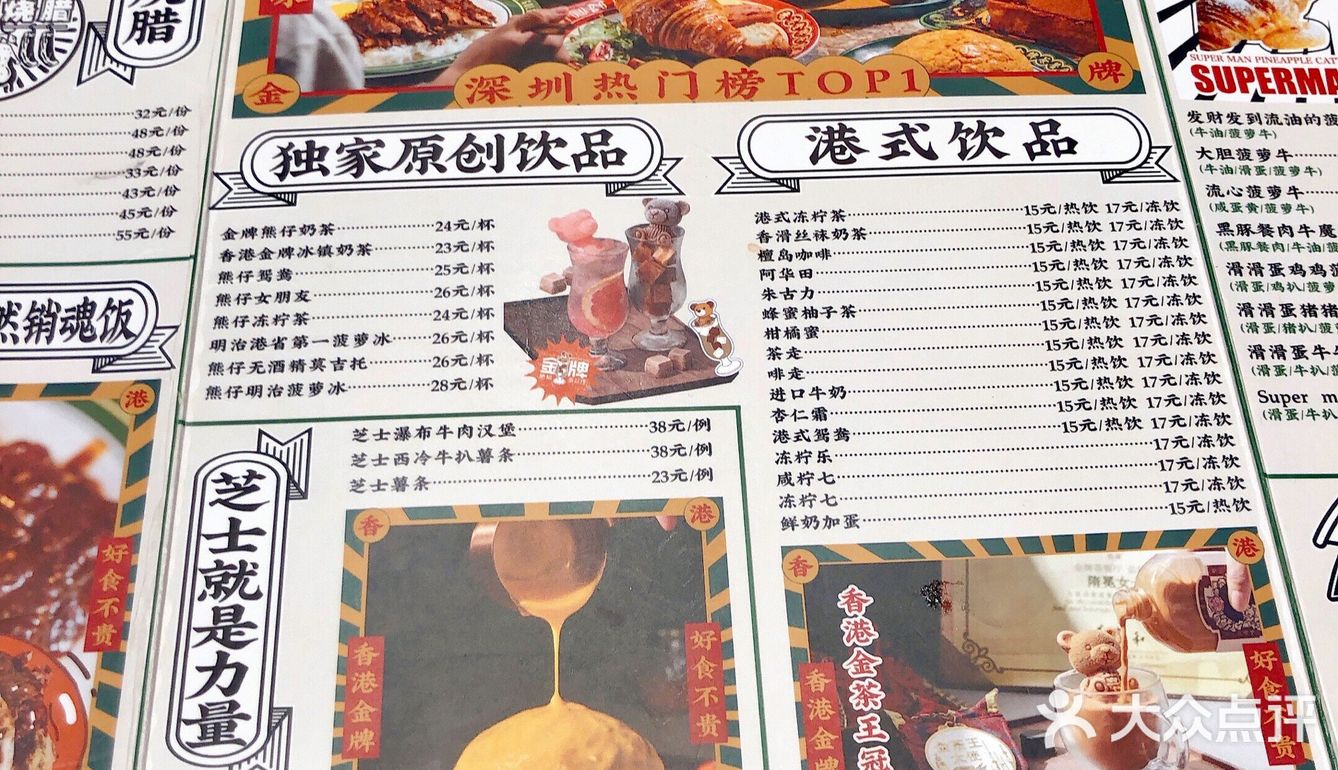 烧腊
腊
32元/份
48元/份
48元/份
33元/份
43元/份
45元/份
55元/份
然销魂饭
港
好食不贵
金
深圳热门榜TOP1
牌
独家原创饮品
金牌熊仔奶茶 24元/杯
香港金牌冰镇奶茶 23元/杯
熊仔鸳鸯 25元/杯
熊仔女朋友 26元/杯
熊仔冻柠茶 24元/杯
明治港省第一菠萝冰 26元/杯
熊仔无酒精莫吉托 26元/杯
熊仔明治菠萝冰 28元/杯
金牌
港式饮品
港式冻柠茶 15元/热饮 17元/冻饮
香滑丝袜奶茶 15元/热饮 17元/冻饮
檀岛咖啡 15元/热饮 17元/冻饮
阿华田 15元/热饮 17元/冻饮
朱古力 15元/热饮 17元/冻饮
蜂蜜柚子茶 15元/热饮 17元/冻饮
柑橘蜜 15元/热饮 17元/冻饮
茶走 15元/热饮 17元/冻饮
啡走 15元/热饮 17元/冻饮
进口牛奶 15元/热饮 17元/冻饮
杏仁霜 15元/热饮 17元/冻饮
港式鸳鸯 15元/热饮 17元/冻饮
冻柠乐 17元/冻饮
咸柠七 17元/冻饮
冻柠七 17元/冻饮
鲜奶加蛋 15元/热饮
芝士就是力量
芝士瀑布牛肉汉堡 38元/例
芝士西冷牛扒薯条 38元/例
芝士薯条 23元/例
香
港
香港金牌
好食不贵
香
港
香港金茶王冠
香港金牌
好食不贵
SUPER MAN PINEAPPLE CAT
SUPERMA
发财发到流油的菠
(牛油/菠萝牛)
大胆菠萝牛
(牛油/滑蛋/菠萝牛)
流心菠萝牛
(咸蛋黄/菠萝牛)
黑豚餐肉牛魔
(黑豚餐肉/牛油/菠
滑滑蛋鸡鸡菠
(滑蛋/鸡扒/菠萝
滑滑蛋猪猪
(滑蛋/猪扒/菠
滑滑蛋牛牛
(滑蛋/牛扒/菠
Super m
(滑蛋/牛扒
大众点评